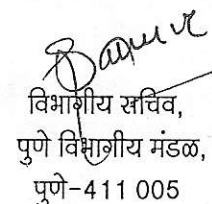 विभागीय सचिव,
पुणे विभागीय मंडळ,
पुणे-411 005